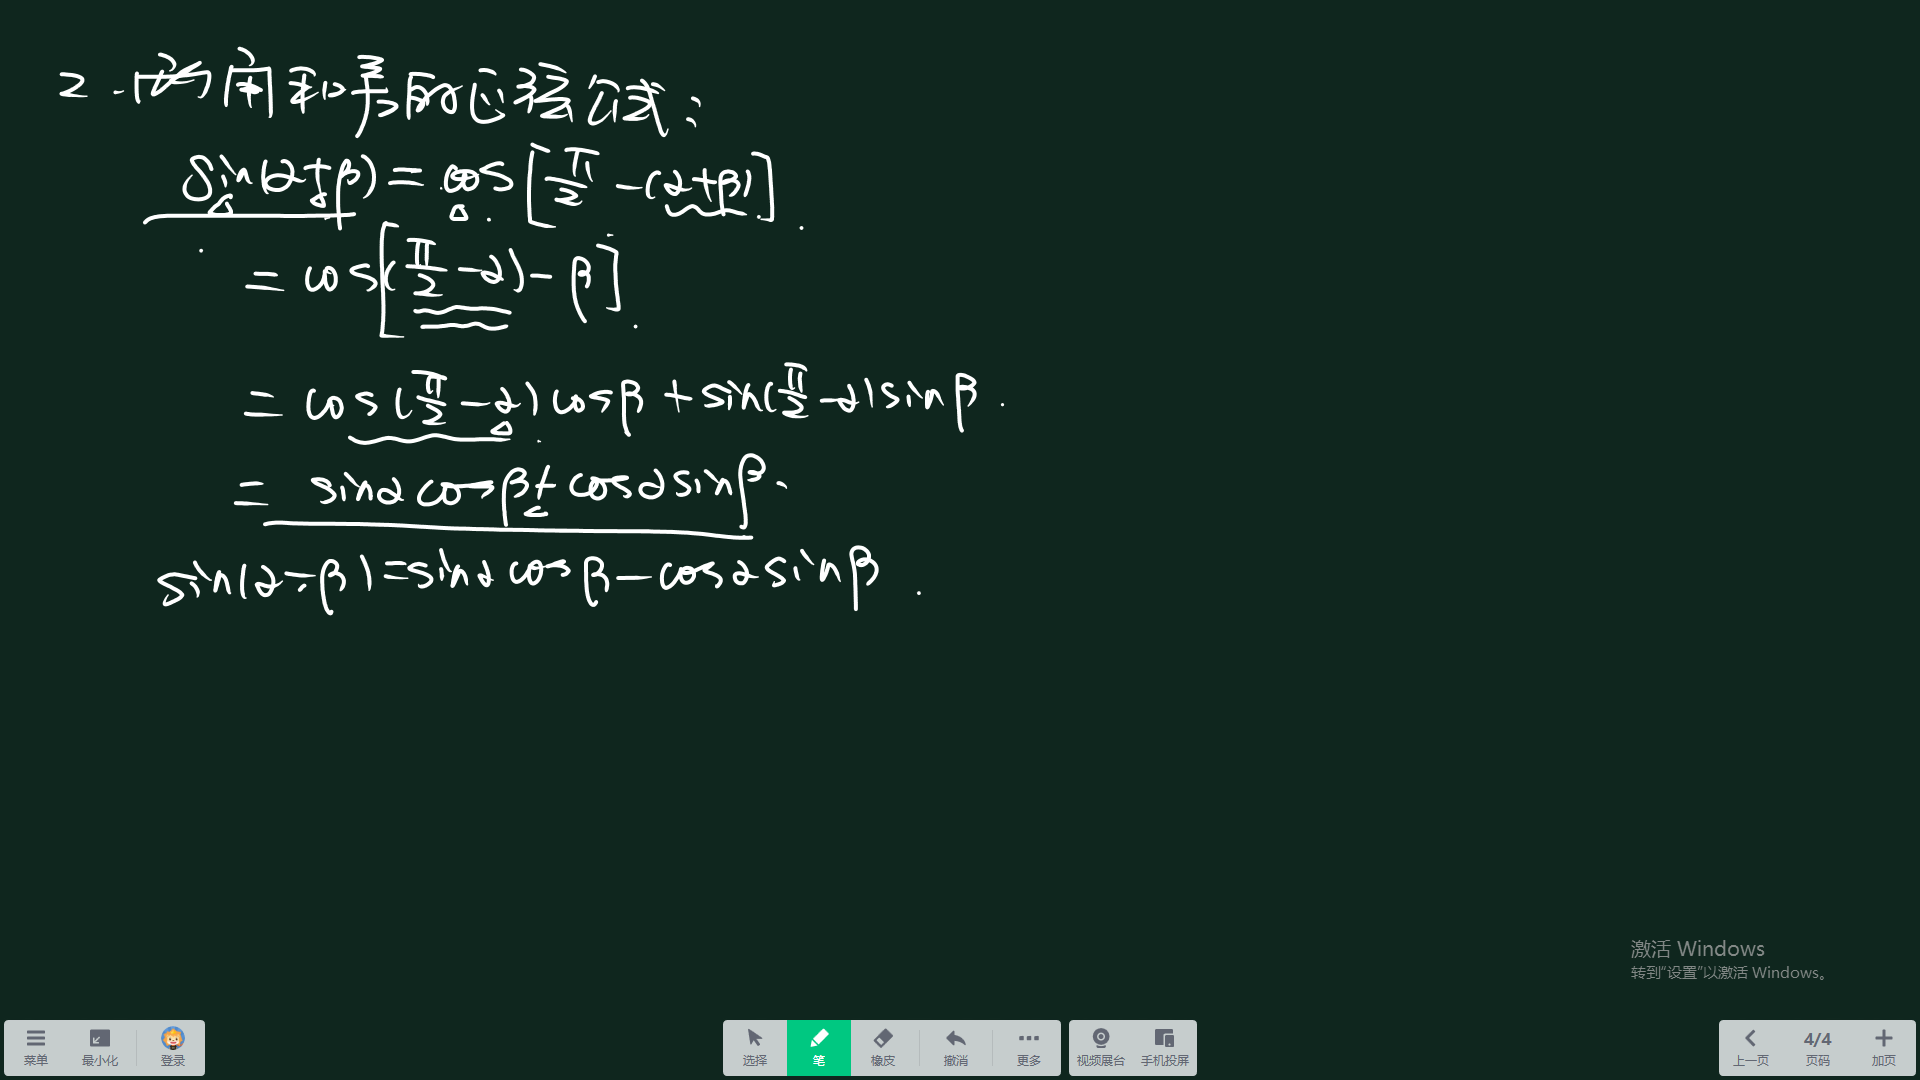 2.两角和差的正弦公式:
sin(α+β)=cos[π/2-(α+β)]
=cos[(π/2-α)-β]
=cos(π/2-α)cosβ+sin(π/2-α)sinβ.
=sinαcosβ+cosαsinβ.
sin(α-β)=sinαcosβ-cosαsinβ.
激活 Windows
转到“设置”以激活 Windows。
菜单 最小化 登录 选择 笔 橡皮 撤消 更多 视频展台 手机投屏 上一页 4/4 页码 加页